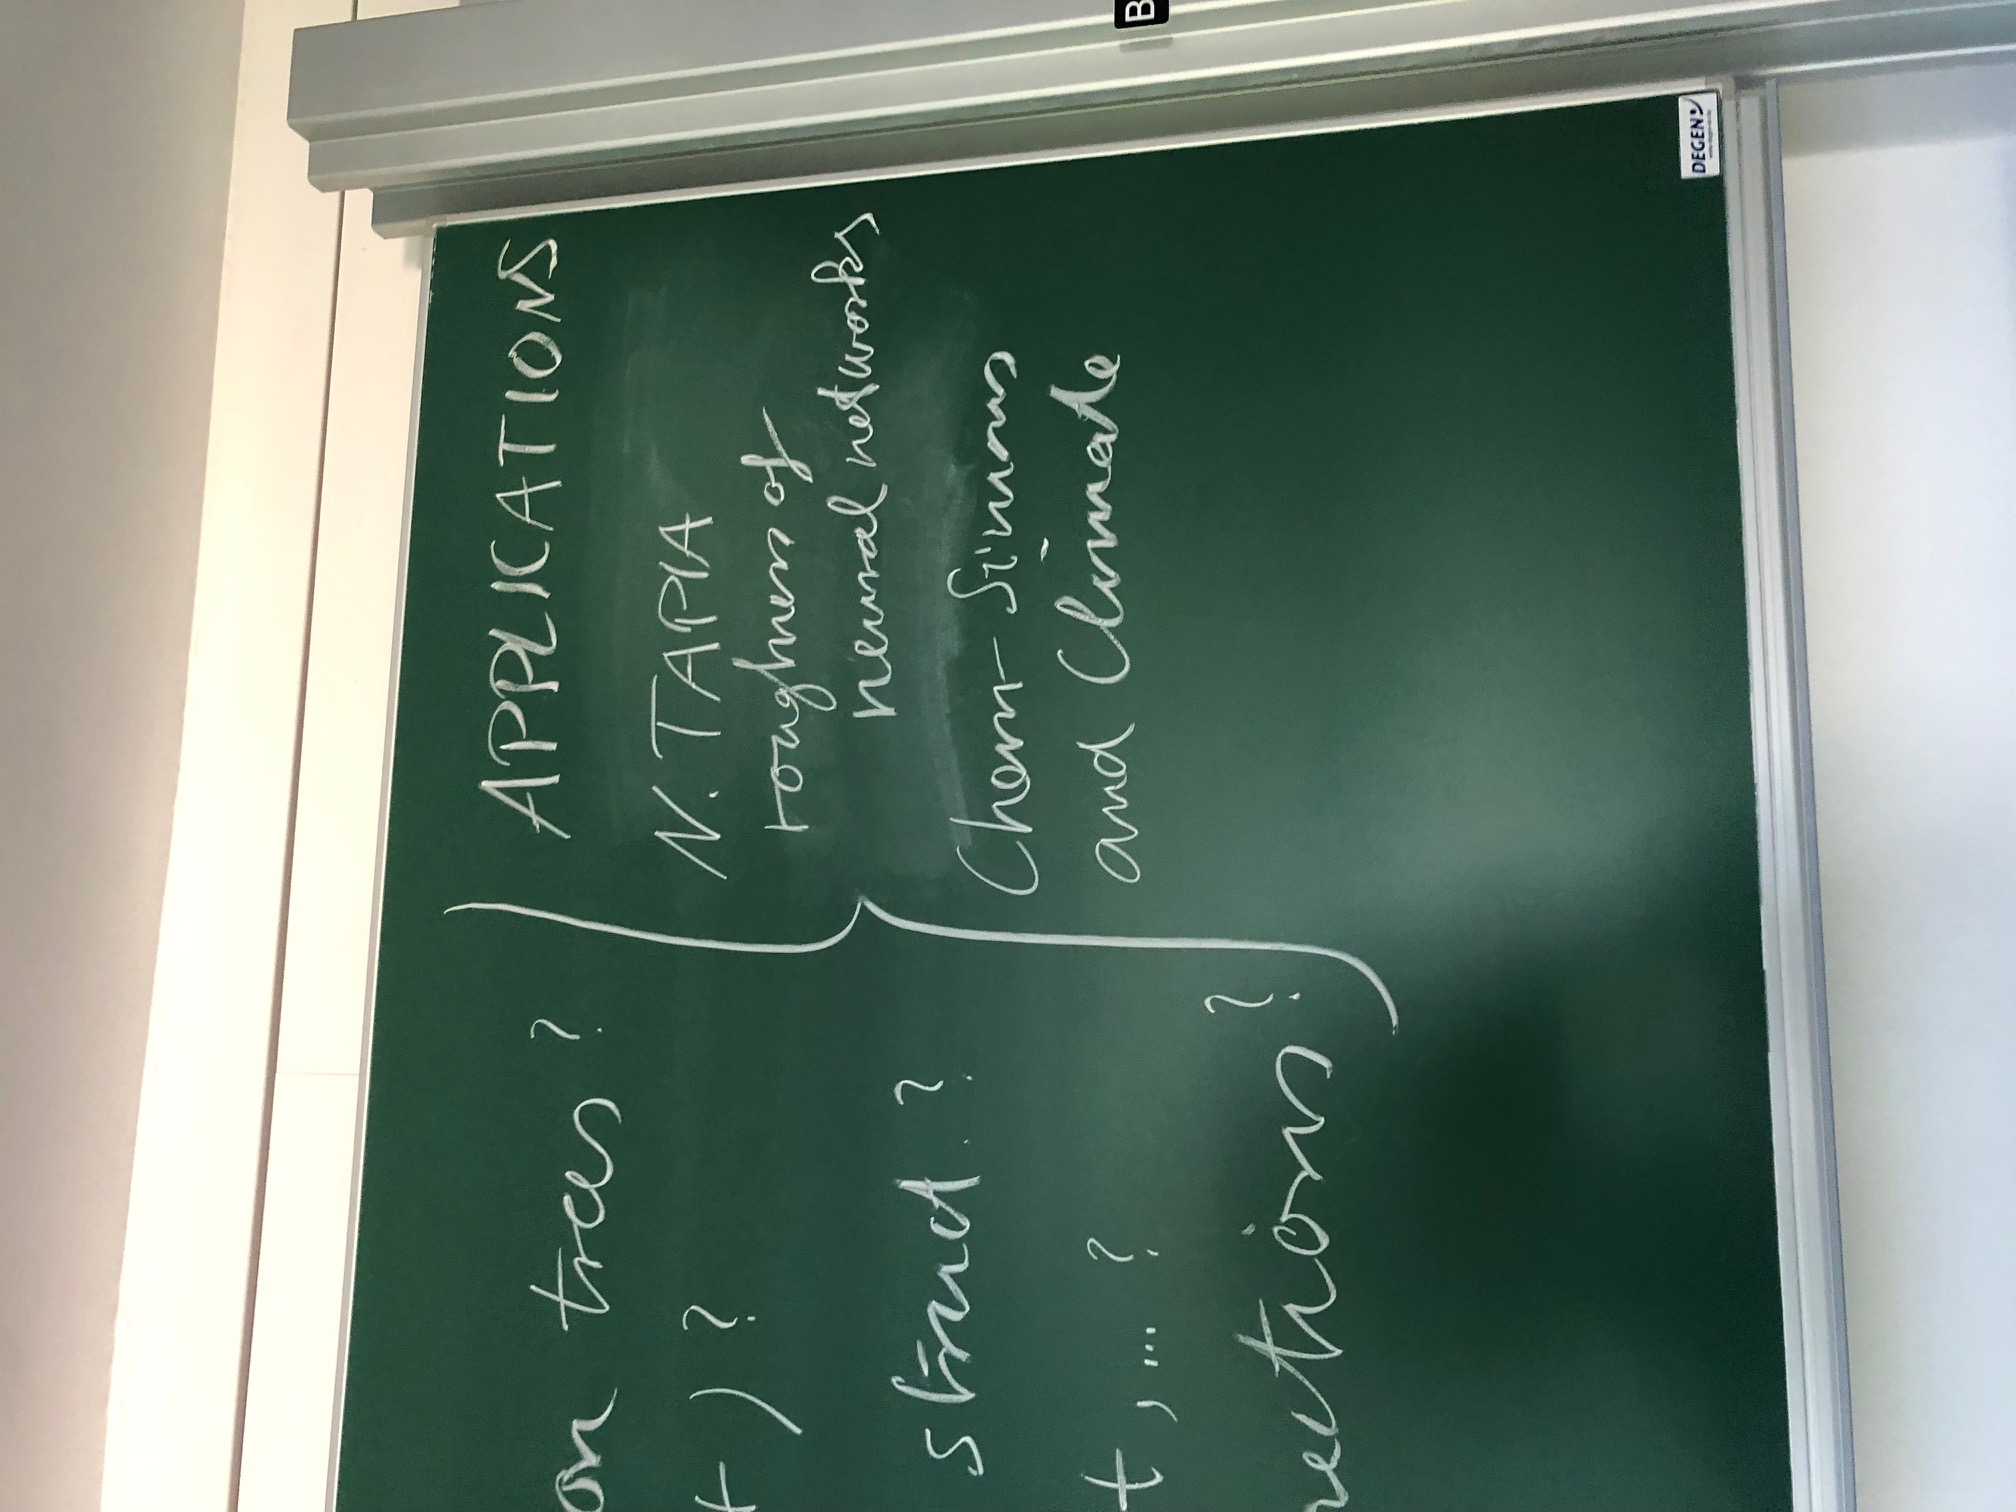 B
DEGEN
on trees ?
t ) ?
struct. ?
t , ... ?
nections ?
APPLICATIONS
N. TAPIA
roughness of
neural networks
Chern-Simons
and Climate